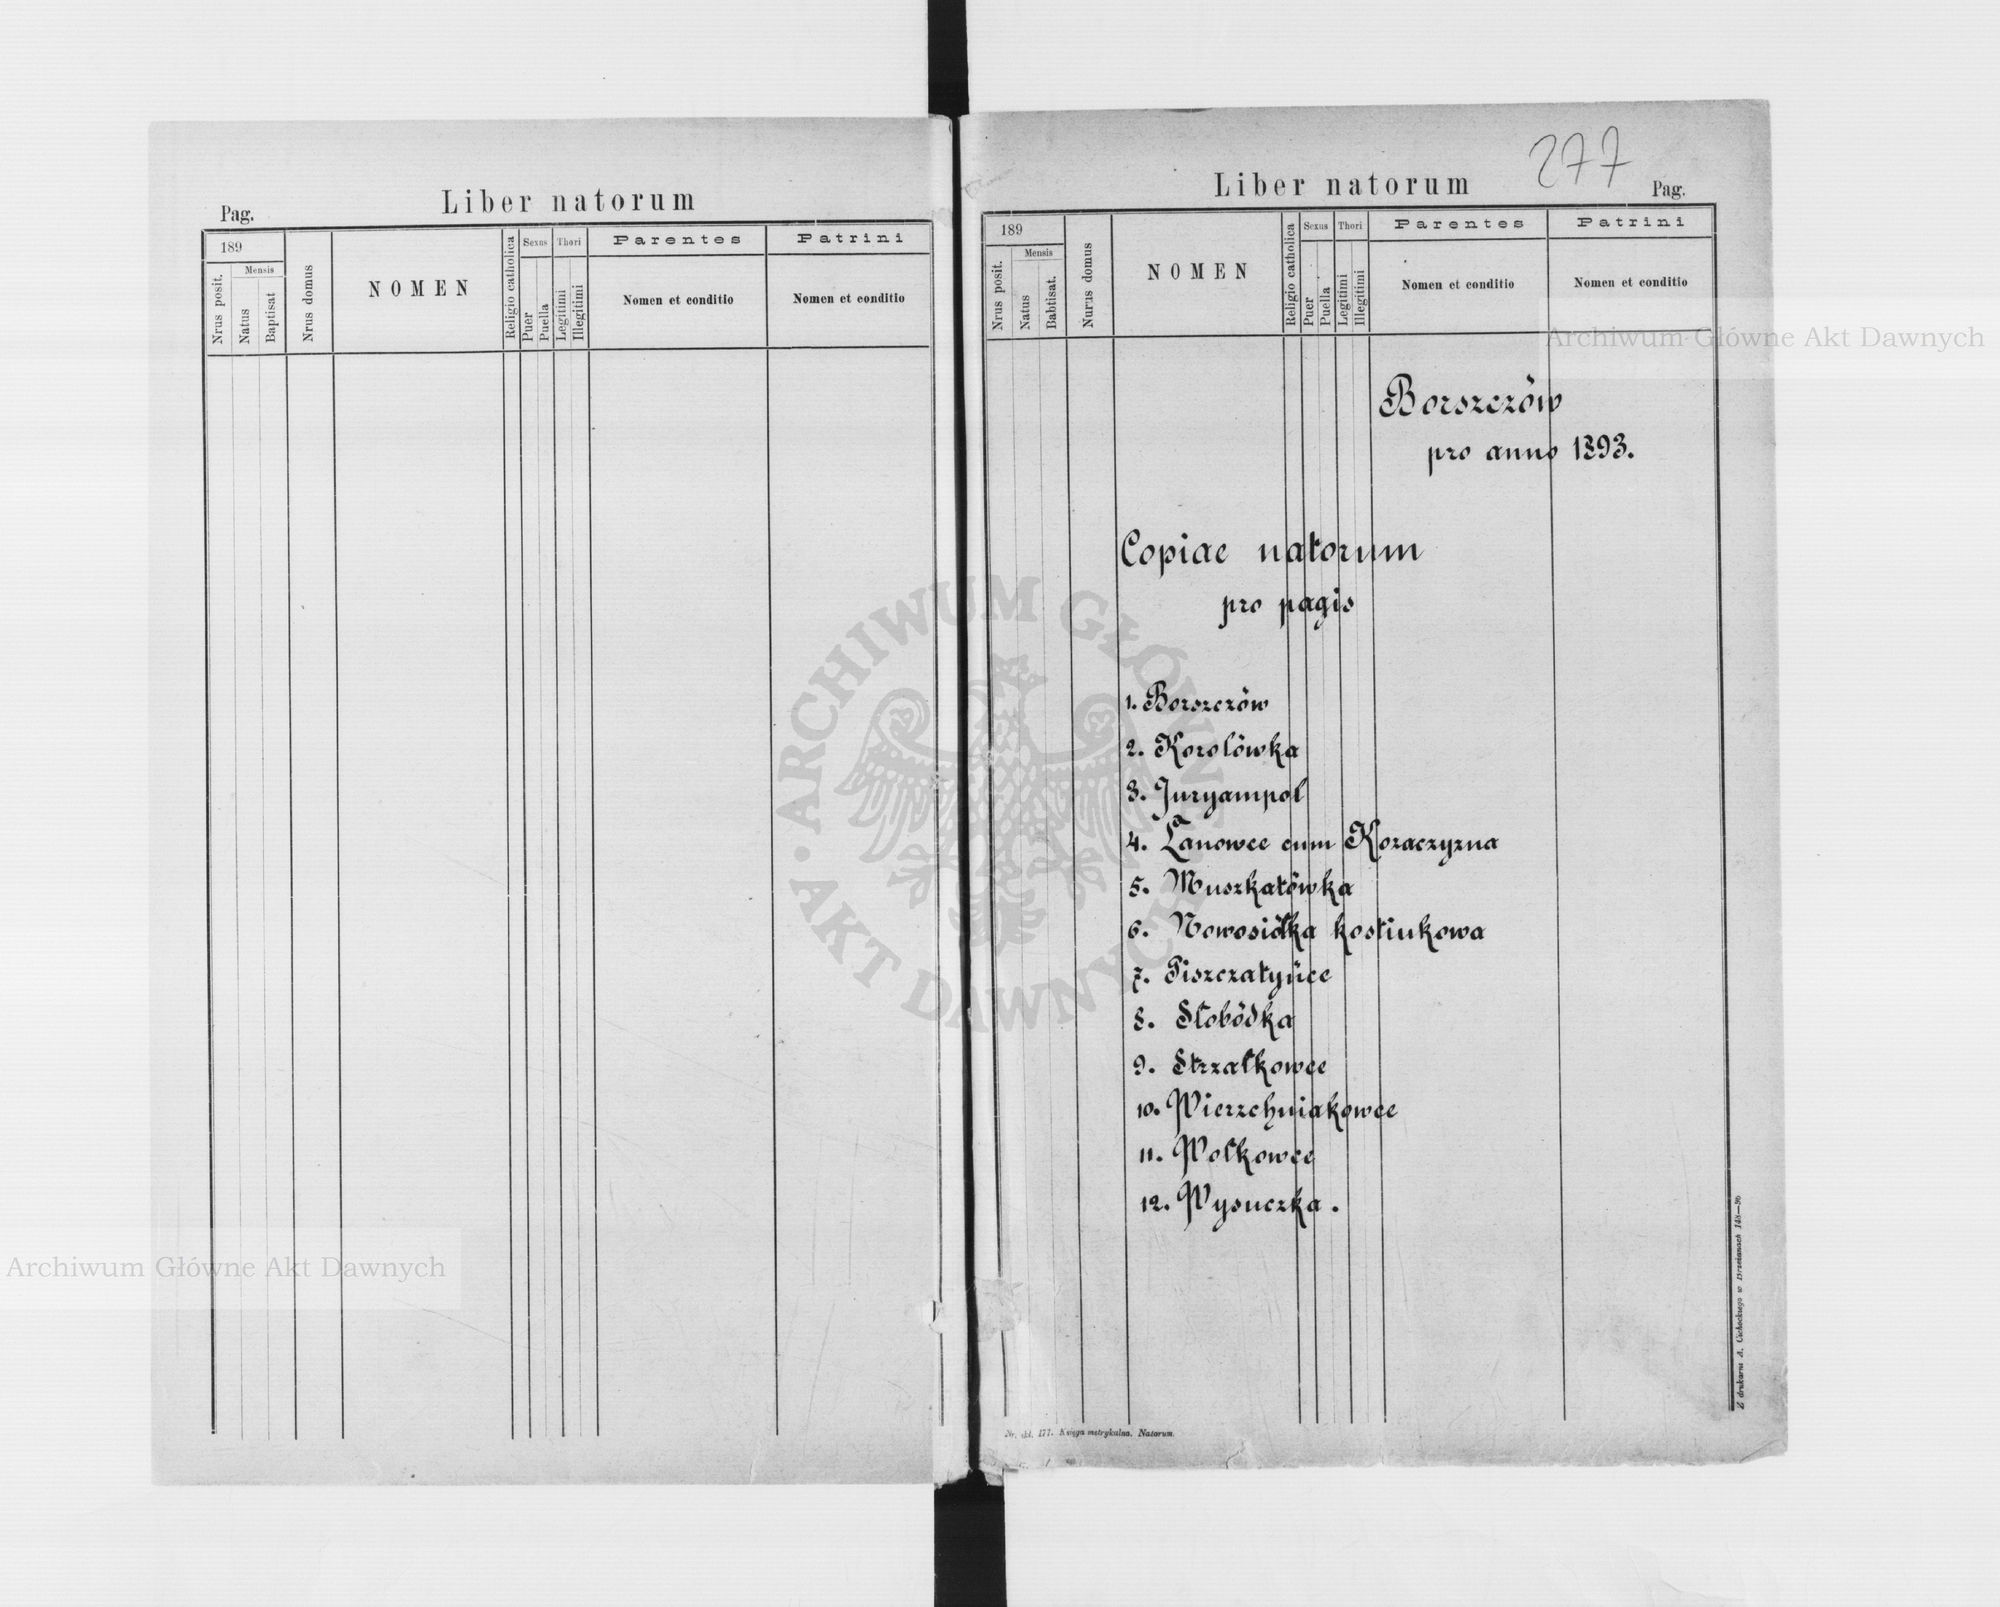 Pag.
Liber natorum
189
Mensis
Nrus posit.
Natus
Baptisat
Nrus domus
NOMEN
Religio catholica
Sexus
Puer
Puella
Thori
Legitimi
Illegitimi
Parentes
Nomen et conditio
Patrini
Nomen et conditio
277
Liber natorum
Pag.
189
Mensis
Nrus posit.
Natus
Babtisat.
Nurus domus
NOMEN
Religio catholica
Sexus
Puer
Puella
Thori
Legitimi
Illegitimi
Parentes
Nomen et conditio
Patrini
Nomen et conditio
Borszczów
pro anno 1893.
Copiae natorum
pro pagis
1. Borszczów
2. Korolówka
3. Juryampol
4. Łanowce cum Kozaczyzna
5. Muszkatówka
6. Nowosiółka kostiukowa
7. Piszczatyńce
8. Słobódka
9. Strzałkowce
10. Wierzchniakowce
11. Wołkowce
12. Wysuczka.
Nr. skł. 177. Księga metrykalna. Natorum.
Z drukarni A. Cichockiego w Brzeżanach 148—96
Archiwum Główne Akt Dawnych
Archiwum Główne Akt Dawnych
ARCHIWUM GŁÓWNE AKT DAWNYCH